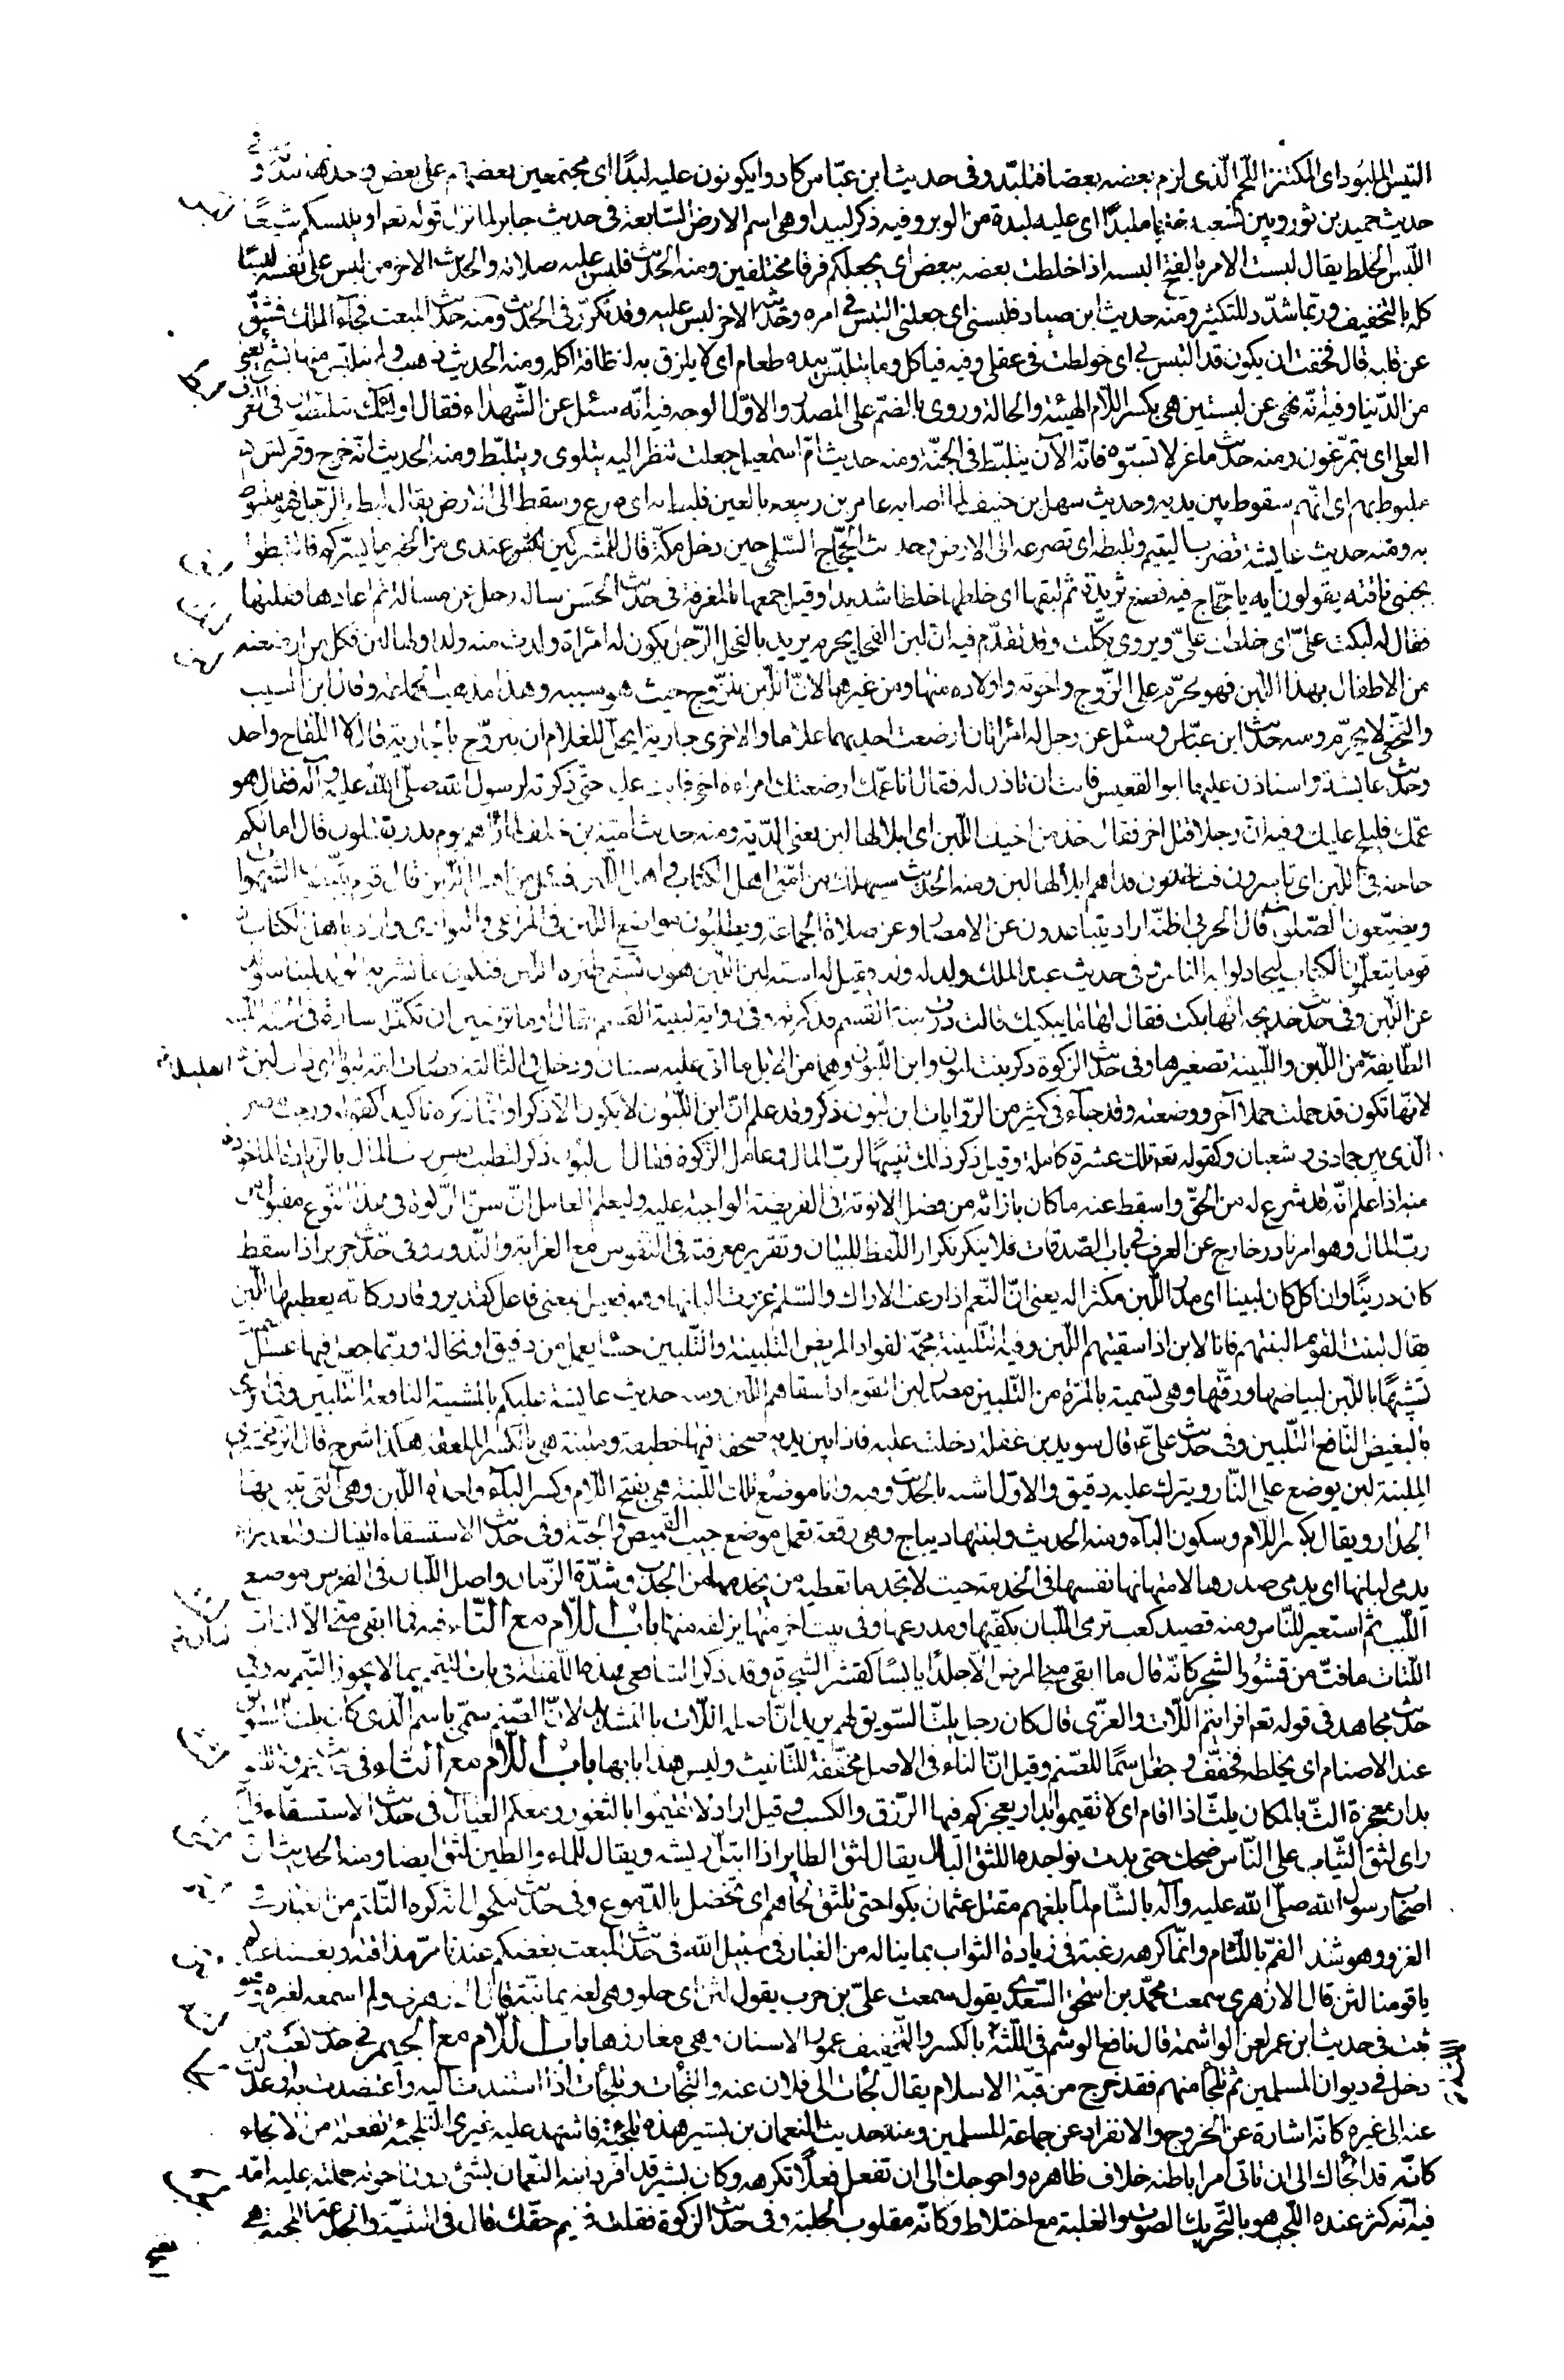 التيس الملبود اى المكتنز اللحم الّذى لزم بعضه بعضا فتلبّد وفى حديث ابن عبّاس كادوا يكونون عليه لبدًا اى مجتمعين بعضهم على بعض
حديث حميد بن ثور وبين ملبدًا اى عليه لبدة من الوبر وفيه ذكر لبيدا وهى اسم الارض السّابعة فى حديث جابر لما نزل قوله تعم او يلبسكم شيعًا
اللّبس الخلط يقال لبست الامر بالفتح البسه اذا خلطت بعضه ببعض اى يجعلكم فرقا مختلفين ومنه الحديث فلبس عليه صلاته والحديث الاخر من لبس على نفسه لبسًا
كله بالتخفيف وربّما شدّد للتكثير ومنه حديث ابن صياد فلبسنى اى جعلنى التبس فى امره وحديثه الاخر لبس عليه وقد تكرّر فى الحديث ومنه حديث المبعث فجآء الملك فشقّ
عن قلبه قال فخفت ان يكون قد التبس بى اى خولطت فى عقلى وفيه فياكل وما يتلبّس بيده طعام اى لا يلزق به لنظافة اكله ومنه الحديث ذهب ولم يتلبّس منها بشئ يعنى
من الدّنيا وفيه انّه نهى عن لبستين هى بكسر اللّام الهيئة والحالة وروى بالضمّ على المصدر والاوّل الوجه فيه انّه سئل عن الشّهداء فقال اولئك يتلبّطون فى الغرف
العلى اى يتمرّغون ومنه حديث ماعز لا تسبّوه فانّه الآن يتلبّط فى الجنّة ومنه حديث امّ اسمعيل جعلت تنظر اليه يتلوى ويتلبّط ومنه الحديث انّه خرج وقريش
ملبوط بهم اى انّهم سقوط بين يديه وحديث سهل بن حنيف لما اصابه عامر بن ربيعه بالعين فلبط به اى صرع وسقط الى الارض يقال لبط بالرّجل فهو ملبوط
به ومنه حديث عايشة تضرب اليتيم وتلبطه اى تصرعه الى الارض وحديث الحجّاج السّلمى حين دخل مكّة قال للمشركين عندى من الخبر ما يسرّكم فالتبطوا
بجنبى ناقته يقولون ايه يا حجّاج فيه فصنع ثريدة ثم لبقها اى خلطها خلطا شديدا وقيل جمعها بالمغرفة فى حديث الحسن ساله رجل عن مسالة ثم اعادها فقلبها
فقال له لبكت علىّ اى خلطت علىّ ويروى بكّلت وقد تقدّم فيه انّ لبن الفحل يحرم يريد بالفحل الرّجل يكون له امراة ولدت منه ولدا ولها لبن فكل من ارضعته
من الاطفال بهذا اللّبن فهو محرّم على الزّوج واخوته واولاده منها ومن غيرها لانّ اللّبن للزّوج حيث هو سببه وهذا مذهب الجماعة وقال ابن المسيب
والنّخعى لا يحرّم ومنه حديث ابن عبّاس وسئل عن رجل له امراتان ارضعت احديهما غلاما والاخرى جارية ايحل للغلام ان يتزوّج بالجارية قال لا اللّقاح واحد
وحديث عايشة واستاذن عليها ابو القعيس فابت ان تاذن له فقال انا عمّك ارضعتك امراءة اخى فابت عليه حتّى ذكرته لرسول الله صلّى الله عليه وآله فقال هو
عمّك فليلج عليك وفيه انّ رجلا قتل اخر فقال خذ من اخيك اللّبن اى ابلا لها لبن يعنى الدّية ومنه حديث اميّة بن خلف لما رآهم يوم بدر يقتلون قال اما لكم
حاجة فى اللّبن اى تاسرون فتاخذون فداهم ابلا لها لبن ومنه الحديث سيهلك من امّتى اهل الكتاب واهل اللّبن فسئل من اهل اللّبن قال قوم يتّبعون الشّهوات
ويضيّعون الصّلوة قال الحربى اظنّه اراد يتباعدون عن الامصار وعن صلاة الجماعة ويطلبون مواضع اللّبن فى المراعى والبوادى واراد باهل الكتاب
قوما يتعلّمون الكتاب ليجادلوا به النّاس وفى حديث عبد الملك ولد له ولد فقيل له اسقه لبن اللّبن
عن اللّبن وفى حديث خديجه انّها بكت فقال لها ما يبكيك قالت درّت لبنة القسم فذكرته وفى رواية لبينة القسم فقال اوما ترضين ان تكفّله سارة فى الجنّة
الطّايفة من اللّبن واللّبينة تصغيرها وفى حديث الزّكوة ذكر بنت لبون وابن اللّبون وهما من الابل ما اتى عليه سنتان ودخل فى الثّالثة
لانّها تكون قد حملت حملا آخر ووضعته وقد جآء فى كثير من الرّوايات ابن لبون ذكر وقد علم انّ ابن اللّبون لا يكون الّا ذكرا وانّما ذكره تاكيدا كقوله ورجب مضر
الّذى بين جمادى وشعبان وكقوله تعم تلك عشرة كاملة وقيل ذكر ذلك تنبيهًا لربّ المال وعامل الزّكوة فقال ابن لبون ذكر لتطيب نفس ربّ المال بالزّيادة الماخوذة
منه اذا علم انّه قد شرع له من الحقّ واسقط عنه ما كان بازائه من فضل الانوثة فى الفريضة الواجبة عليه وليعلم العامل انّ سنّ الزّكوة فى هذا النّوع مقبول من
ربّ المال وهو امر نادر خارج عن العرف فى باب الصّدقات فلا ينكر تكرار اللّفظ للبيان وتقرير معرفته فى النّفوس مع الغرابة والنّدور وفى حديث جرير اذا سقط
كان درينًا وان اكل كان لبينا اى مدرّ اللّبن مكثرا له يعنى انّ النّعم اذا رعت الاراك والسّلم غزرت البانها وهو فعيل بمعنى فاعل كقدير وقادر كانّه يعطيها اللّبن
يقال لبنت القوم البنهم فانا لابن اذا سقيتهم اللّبن وفيه التّلبينة مجمّة لفواد المريض التّلبينة والتّلبين حسآء يعمل من دقيق او نخالة وربّما جعل فيها عسل
تشبيهًا باللّبن لبياضها ورقّتها وهى تسمية بالمرّة من التّلبين مصدر لبن القوم اذا سقاهم اللّبن ومنه حديث عايشة عليكم بالمشنية النافعة التّلبين وفى اخرى
بالبغيض النّافع التّلبين وفى حديث علىّ ع قال سويد بن غفلة دخلت عليه فاذا بين يديه صحفة فيها خطيفة وملبنة هى بالكسر الملعقة هكذا شرح قال الزّمخشرى
الملبنة لبن يوضع على النّار ويترك عليه دقيق والاوّل اشبه بالحديث وفيه وانا موضع تلك اللّبنة هى بفتح اللّام وكسر البآء واحدة اللّبن وهى الّتى يبنى بها
الجدار ويقال بكسر اللّام وسكون البآء ومنه الحديث ولبنتها ديباج وهى رقعة تعمل موضع جيب القميص والجبّة وفى حديث الاستسقاء اتيناك والعذراء
يدمى لبانها اى يدمى صدرها لامتهانها نفسها فى الخدمة حيث لا تجد ما تعطيه من يخدمها من الجدب وشدّة الزّمان واصل اللّبان فى الفرس موضع
اللّبب ثم استعير للنّاس ومنه قصيد كعب ترمى اللّبان بكفّيها ومدرعها وفى بيت اخر منها يزلقه منها باب اللّام مع التّاء فيه فما ابقى منّى الّا لتاتا
اللّتات ما فتّ من قشور الشّجر كانّه قال ما ابقى منّى المرض الّا جلدًا يابسًا كقشر الشّجرة وقد ذكر الشّافعى هذه اللّفظة فى باب التيمّم بما لا يجوز التّيمّم به وفى
حديث مجاهد فى قوله تعم افرايتم اللّات والعزّى قال كان رجل يلتّ السّويق لهم يريد انّ اصله اللّات بالتّشديد لانّ الصّنم سمّى باسم الّذى كان يلتّ السّويق
عند الاصنام اى يخلطه فخفّف وجعل اسمًا للصّنم وقيل انّ التّاء فى الاصل مخفّفة للتّانيث وليس هذا بابها باب اللّام مع الثّاء
بدار معجزة الثّ بالمكان يلثّ اذا اقام اى لا تقيموا بدار يعجزكم فيها الرّزق والكسب وقيل اراد لا تقيموا بالثغور ومعكم العيال فى حديث الاستسقاء فلمّا
راى لثق الثّياب على النّاس ضحك حتى بدت نواجده اللثق البلل يقال لثق الطاير اذا ابتلّ ريشه ويقال للماء والطين لثق ايضا ومنه الحديث انّ
اصحاب رسول الله صلّى الله عليه وآله بالشّام لما بلغهم مقتل عثمان بكوا حتى تلثق لحاهم اى تخضل بالدّموع وفى حديث مكحول انّه كره التّلثّم من الغبار فى
الغزو وهو شدّ الفم باللّثام وانّما كرهه رغبة فى زيادة الثواب بما يناله من الغبار فى سبيل الله فى حديث المبعث بغضكم عندنا مرّ مذاقته وبغضنا عندكم
يا قومنا لثن قال الازهرى سمعت محمّد بن اسحق السّعدى يقول سمعت علىّ بن حرب يقول لثن اى حلو وهى لغة يمانيّة قال الازهرى ولم اسمعه لغيره وهو
ثبت فى حديث ابن عمر لعن الواشمة قال نافع الوشم فى اللّثة بالكسر والتّخفيف عمور الاسنان وهى مغارزها باب اللّام مع الجيم فى حديث كعب من
دخل فى ديوان المسلمين ثم تلجّا منهم فقد خرج من قبّة الاسلام يقال لجات الى فلان عنه والتجات وتلجّات اذا استندت اليه واعتضدت به او عدلت
عنه الى غيره كانّه اشارة عن الخروج والانفراد عن جماعة المسلمين ومنه حديث النعمان بن بشير هذه تلجئة فاشهد عليه غيرى التلجئة تفعلة من الالجاء
كانّه قد الجاك الى ان تاتى امرا باطنه خلاف ظاهره واحوجك الى ان تفعل فعلًا تكرهه وكان بشير قد افرد ابنه النّعمان بشئ دون اخوته حملته عليه امّه
فيه انّه كثر عنده اللّجب هو بالتّحريك الصوت والغلبة مع اختلاط وكانّه مقلوب الجلبة وفى حديث الزّكوة فقلت ففيم حقّك قال فى الثنيّة والجذعة اللجبة هى